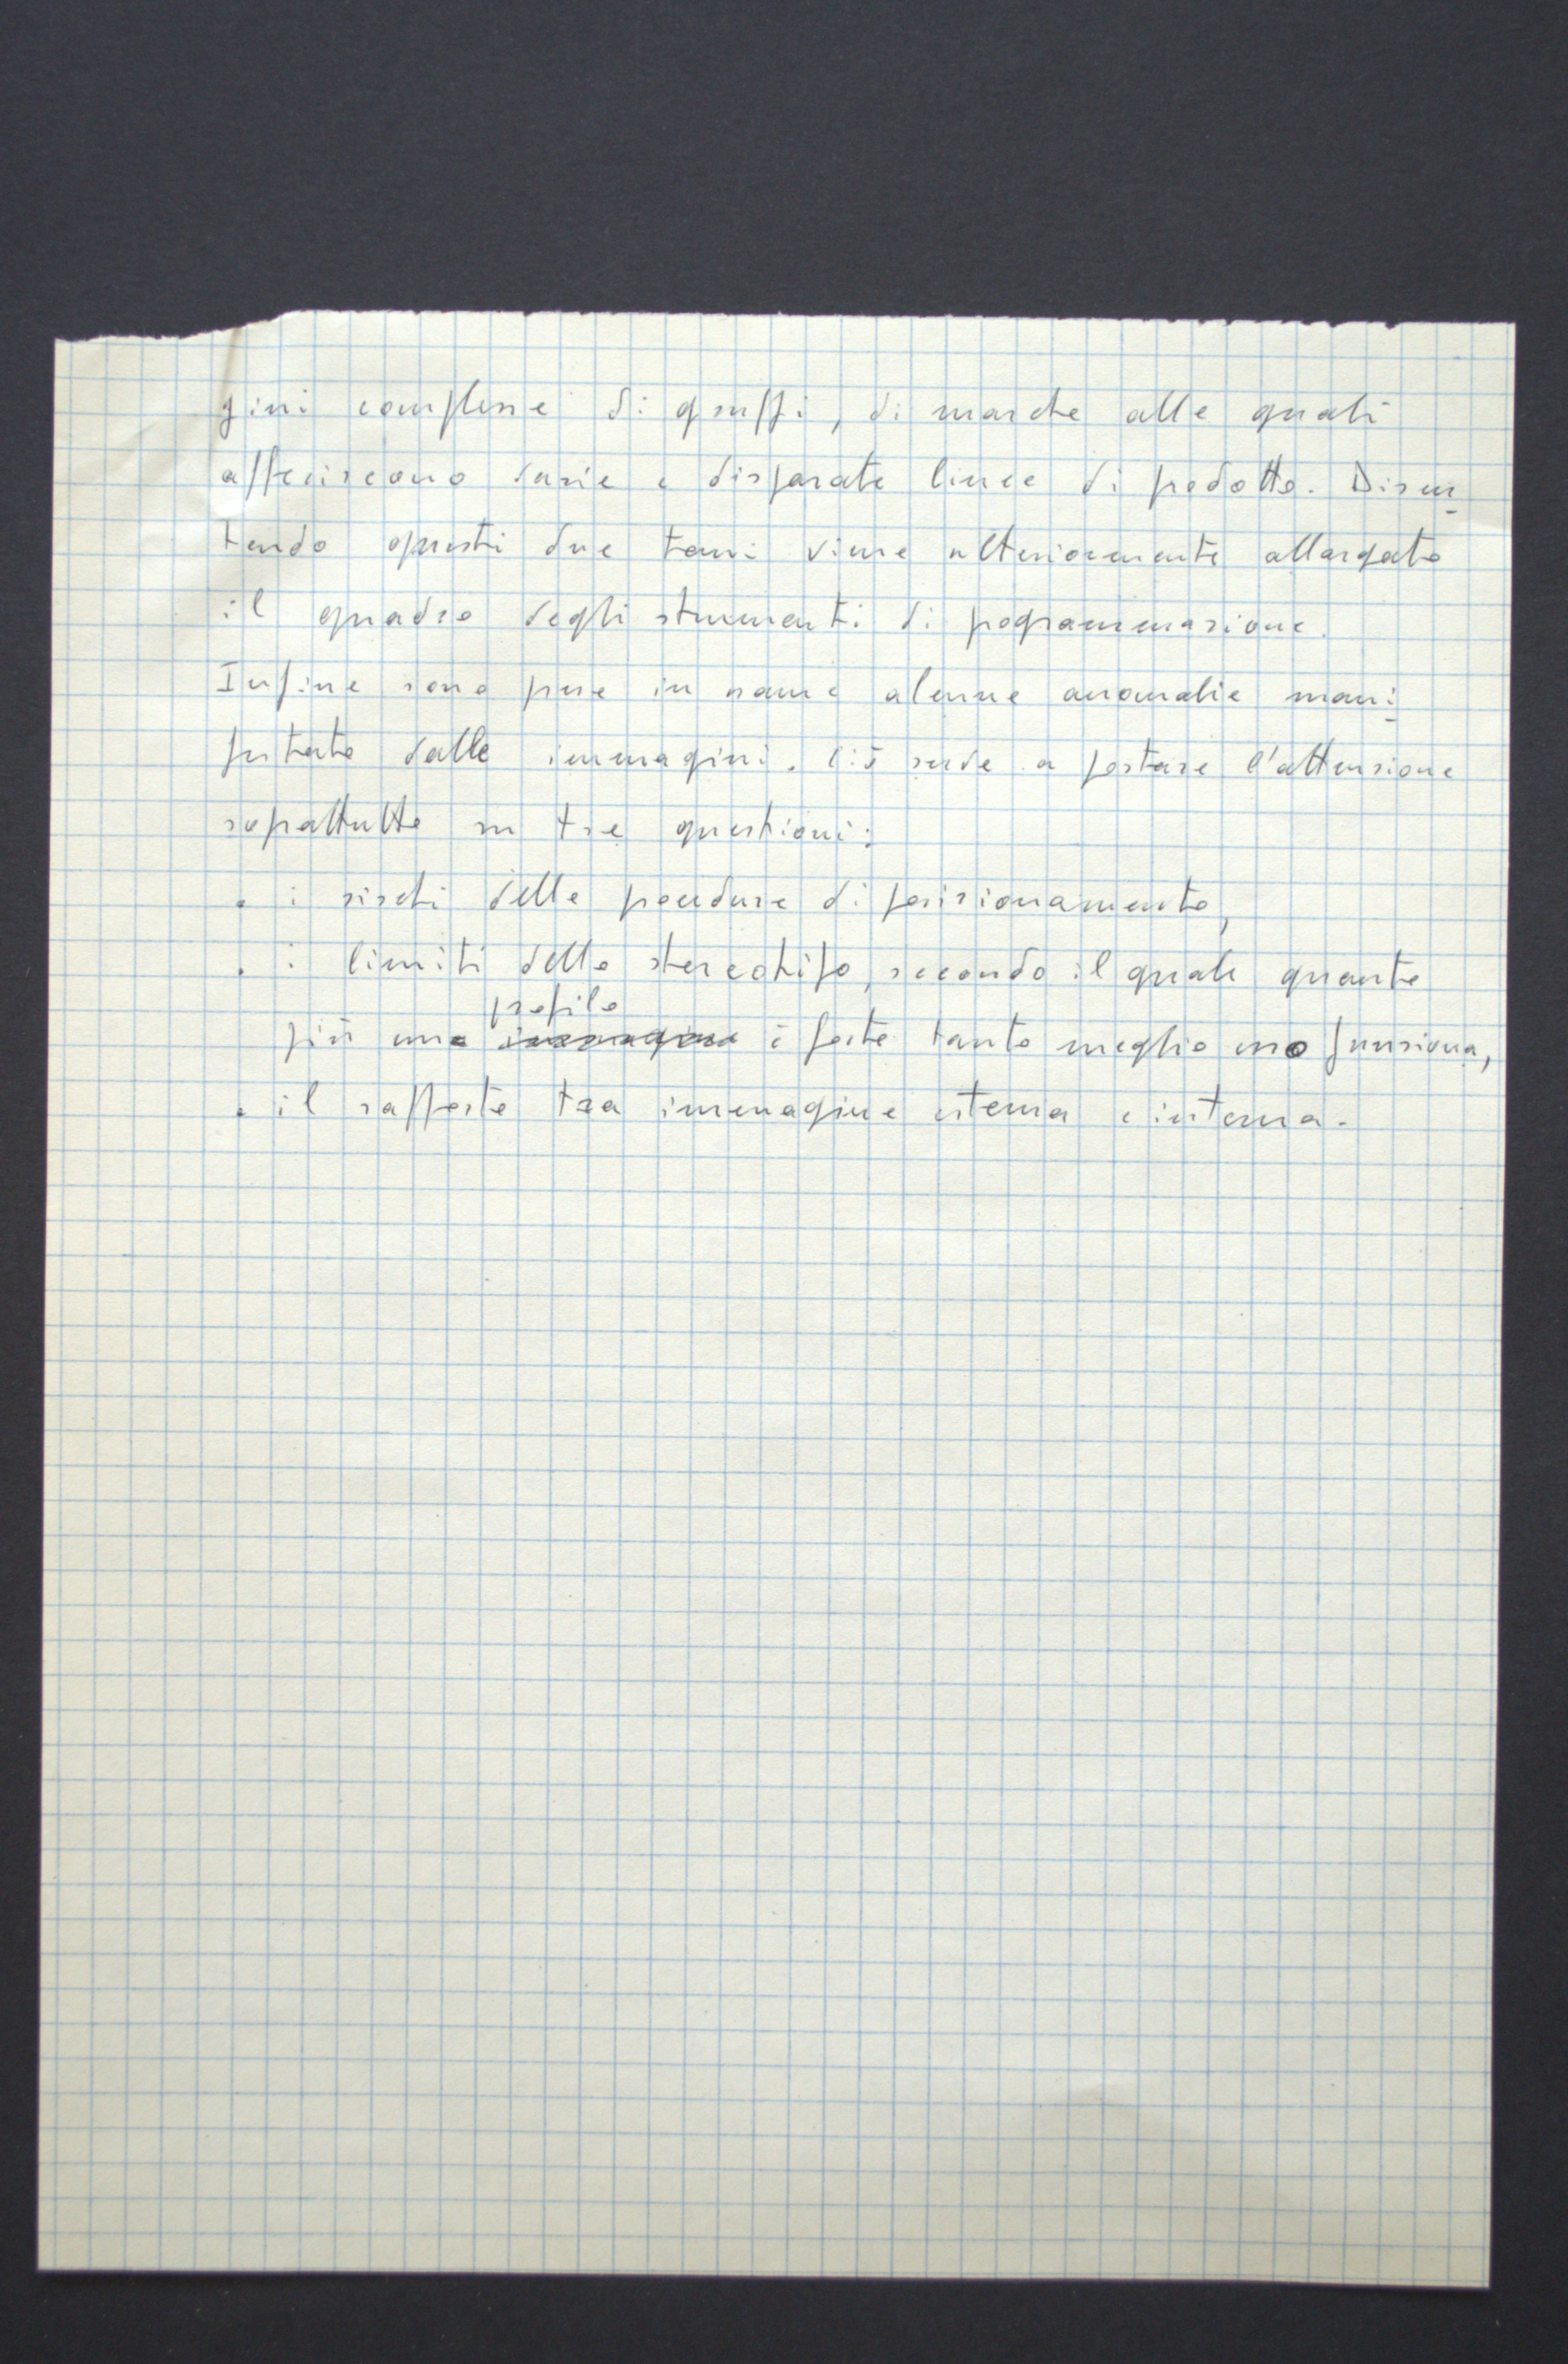 gini complesse di gruppi, di marche alle quali
afferiscono varie e disparate linee di prodotto. Discu
tendo questi due temi viene ulteriormente allargato
il quadro degli strumenti di programmazione.
Infine sono prese in esame alcune anomalie mani
festate dalle immagini. Ciò serve a portare l'attenzione
soprattutto su tre questioni:
. i rischi delle procedure di posizionamento,
. i limiti dello stereotipo, secondo il quale quanto
profilo
più un immagine è forte tanto meglio esso funziona,
. il rapporto tra immagine esterna e interna.